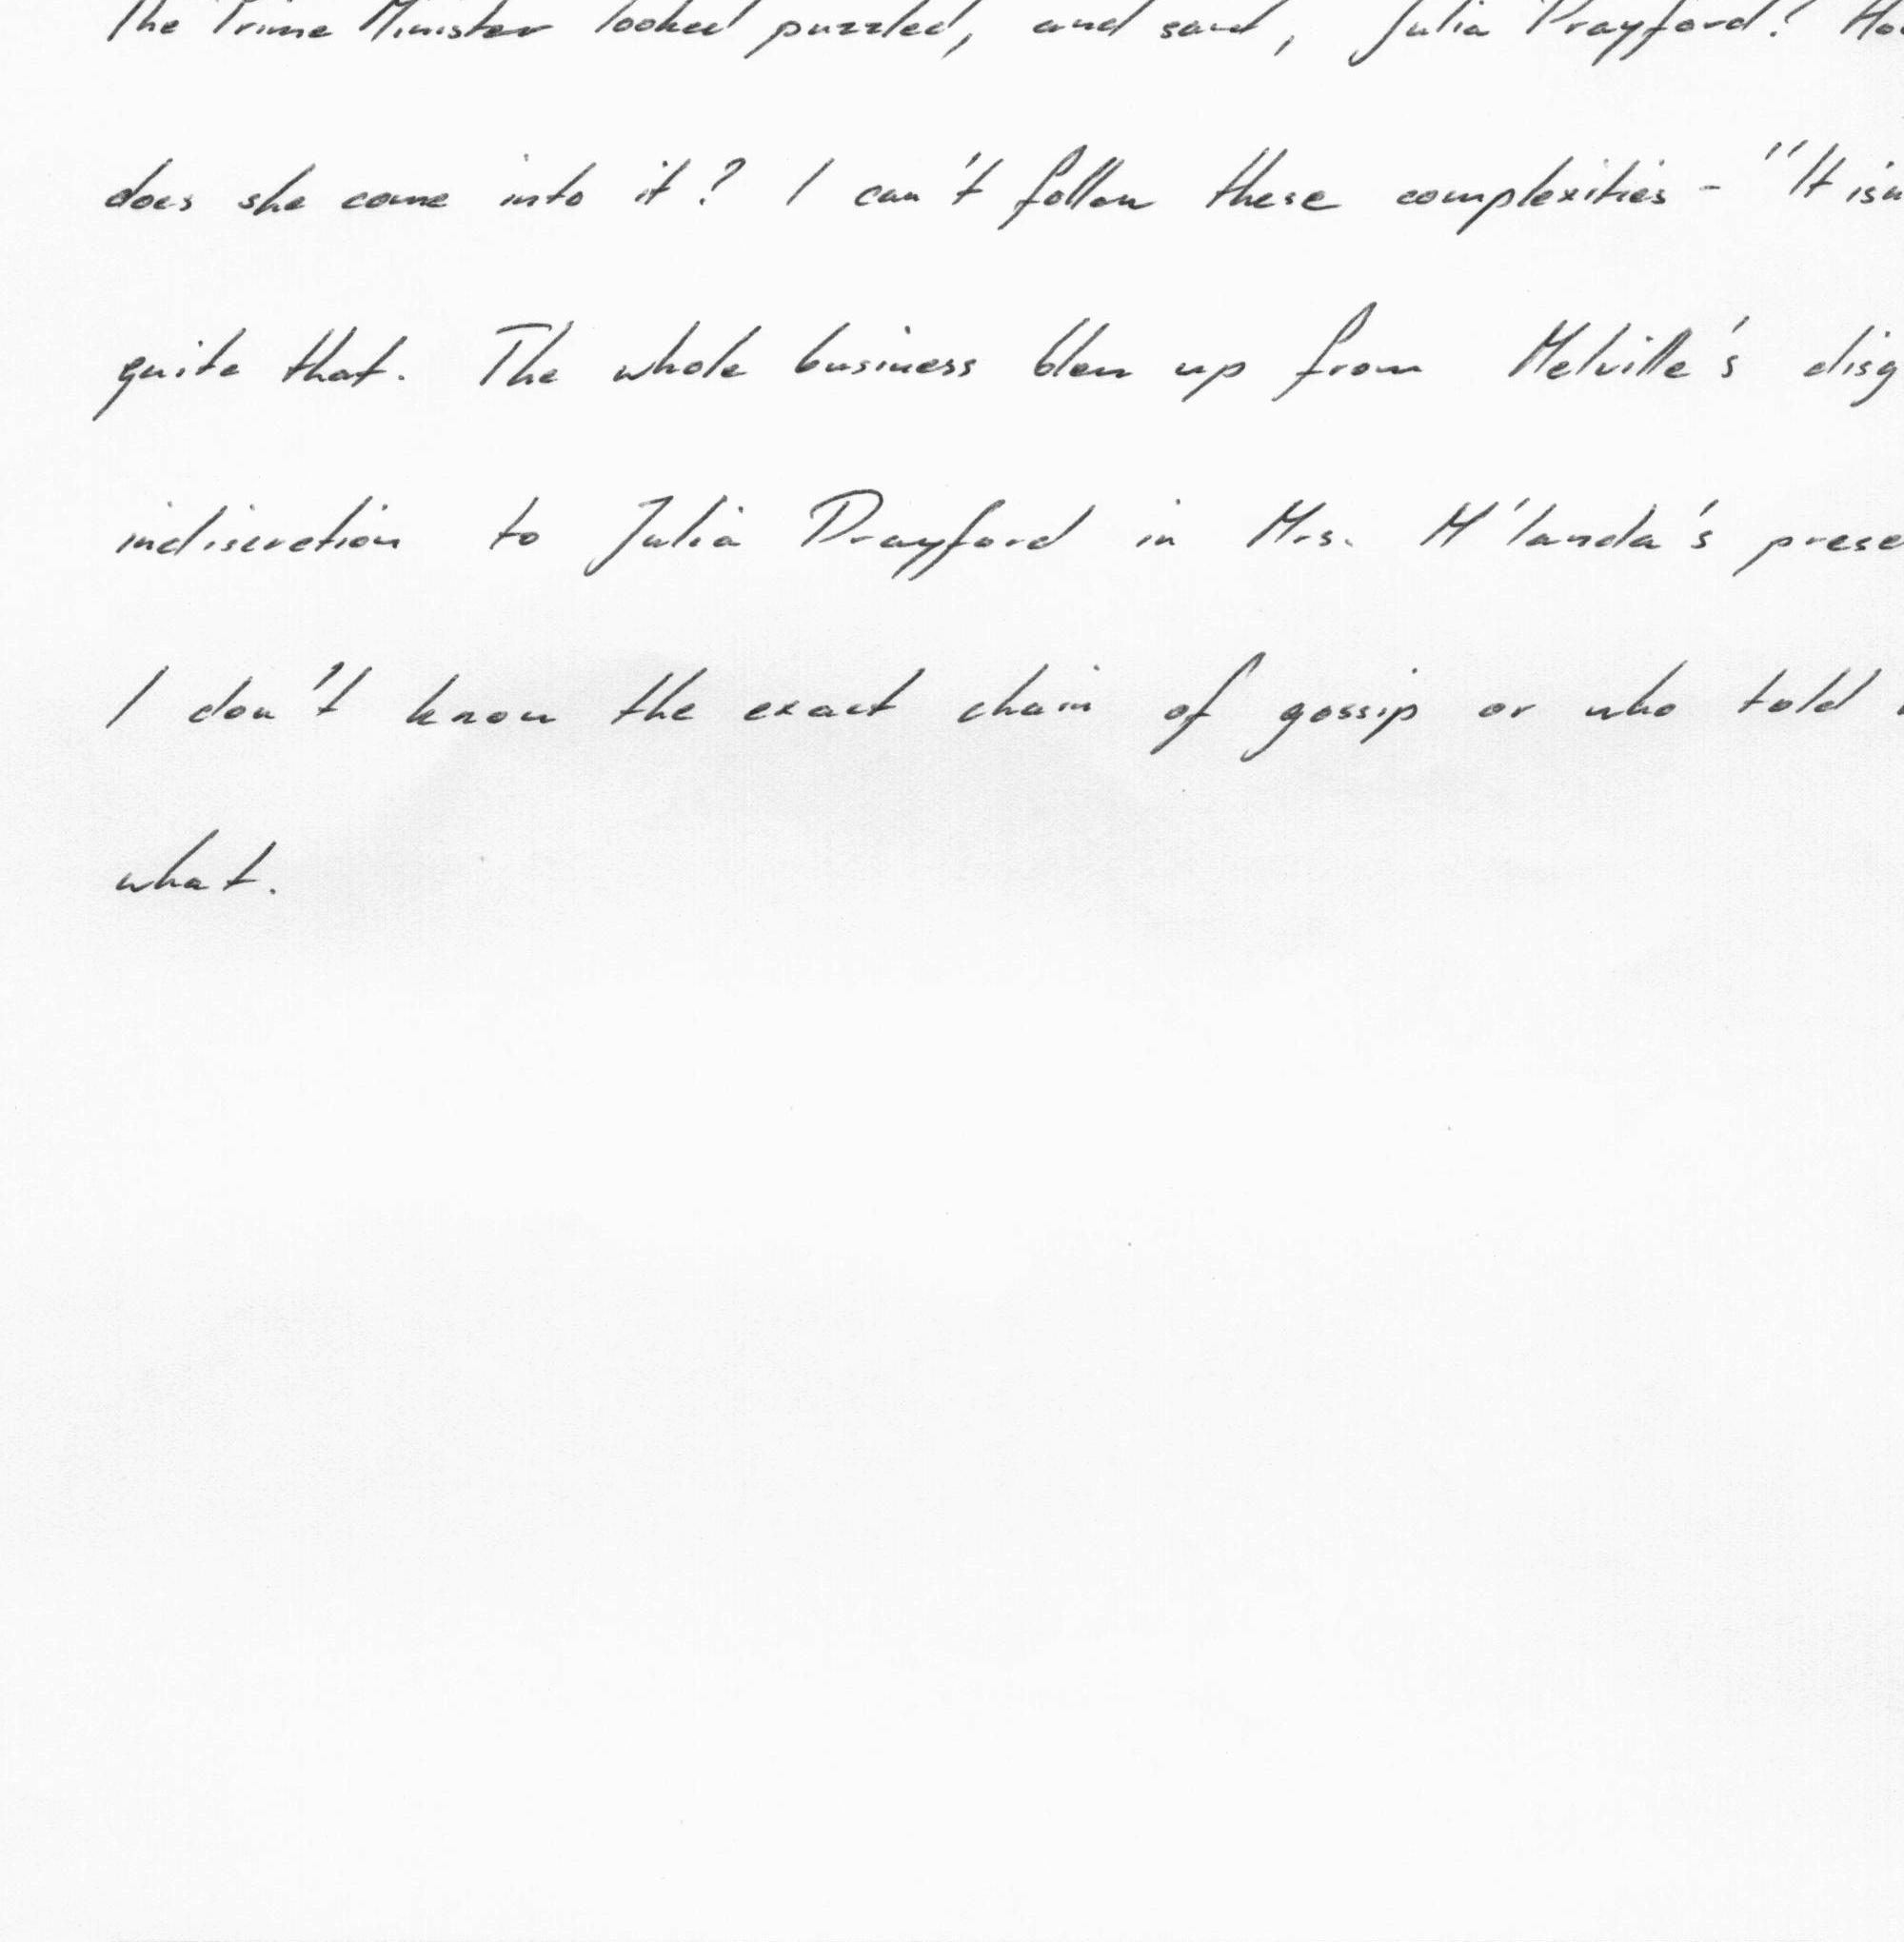 The Prime Minister looked puzzled, and said, Julia Drayford?
does she come into it? I can't follow these complexities - "It
quite that. The whole business blew up from Melville's
indiscretion to Julia Drayford in Mrs. M'landa's
I don't know the exact chain of gossip or who told
what.